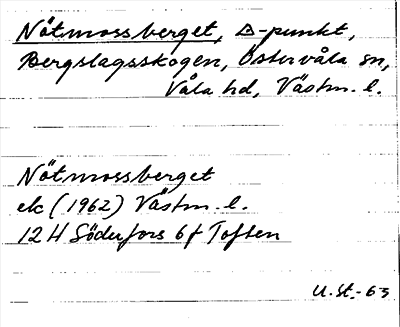 Nötmossberget, △-punkt,
Bergslagsskogen, Östervåla sn,
Våla hd, Västm. l.
Nötmossberget
ek (1962) Västm. l.
12 H Söderfors 6 f Toften
U.St.-63